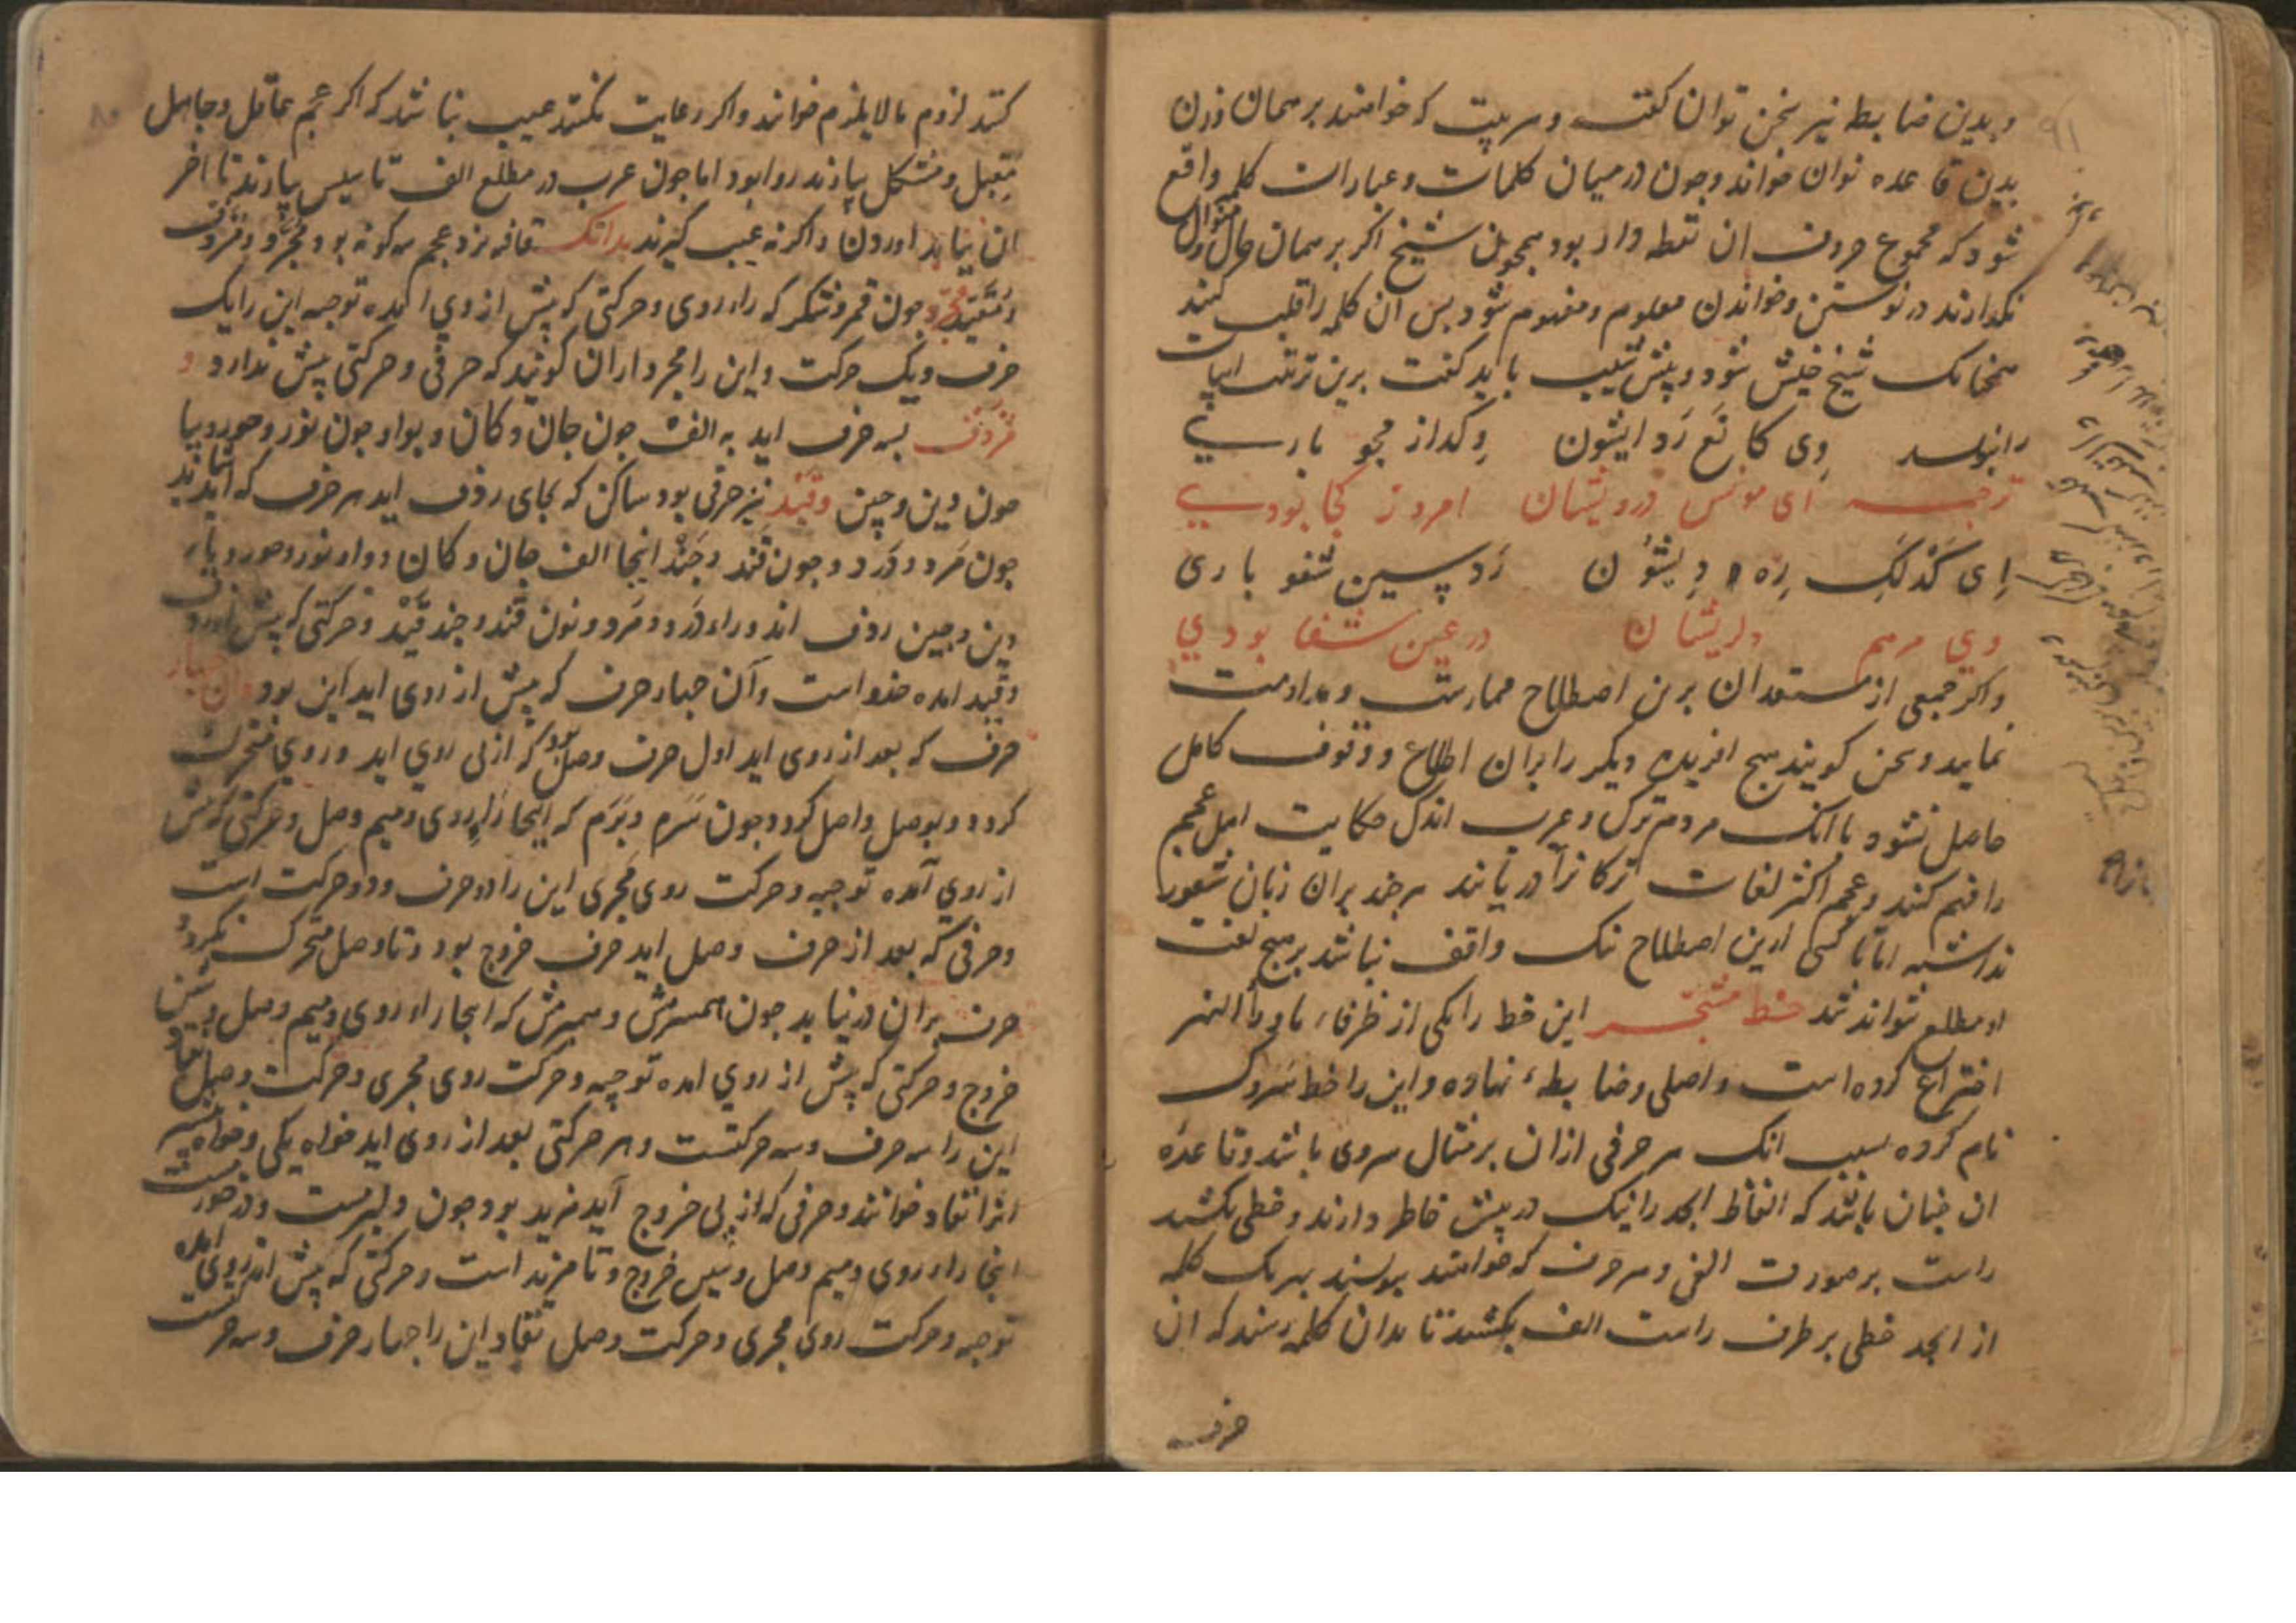 و بدین ضابطه نیز سخن توان کفت و هر بیت که خوامند بر همان وزن
بدین قاعده توان خواند و چون در میان کلمات و عبارات کلمه واقع
شود که مجموع حروف ان نقطه دار بود همچون شیخ اکر بر همان حال
نکدارند در نوشتن و خواندن معلوم و مفهوم شود بس ان کلمه را قلب کنند
همچنانک شیخ خیش شود و پیش شیپ باید کفت برین ترتیب ابیات
وی کا نَع رَد ایشون وِکداز مجو بارسی
ترجمه ای مونس درویشان امروز کجا بودی
اِی کَدلَکِ رِه دِیشوُن رَد پسین شفو باری
وی مرهم دلریشان در عین شفا بودی
و اکر جمعی از مستعدان برین اصطلاح ممارست و مداومت
نمایند و سخن کویند هیچ افریده دیکر را بران اطلاع و وقوف کامل
حاصل نشود با انک مردم ترک و عرب اندک حکایت اهل عجم
را فهم کنند و عجم اکثر لغات ترکانرا دریابند هر چند بران زبان شعور
نداشته اما تا کسی ازین اصطلاح نیک واقف نباشد بر هیچ لغت
او مطلع نتواند شد خط مشجر این خط را یکی از ظرفاء ماوراء النهر
اختراع کرده است و اصلی و ضابطهٔ نهاده و این را خط سَروک
نام کرده بسبب انک هر حرفی ازان بر مثال سروی باشد و قاعدهٔ
ان چنان باشد که الفاظ ابجد را نیک در پیش خاطر دارند و خطی بکشند
راست بر صورت الفی و هر حرف که خوامند بنویسند بهر یک کلمه
از ابجد خطی بر طرف راست الف بکشند تا بدان کلمه رسند که ان
حرف
کنند لزوم مالایلزم خوانند و اکر رعایت نکنند عیب نباشد که اکر عجم عاقل و جاهل
مقبل و مشکل بیارند روا بود اما چون عرب در مطلع الف تاسیس بیارند تا اخر
ان بباید اوردن و اکر نه عیب کیرند بدانک قافیه نزد عجم سه کونه بود مجرد و مردف
و مقید مجرد چون قمر و شکر که را روی و حرکتی که پیش از وی امده توجیه این را یک
حرف و یک حرکت و این را مجرد ازان کویند که حرفی و حرکتی پیش ندارد و
مردف بسه حرف اید به الف چون جان و کان و بواو چون نور و حور و بیا
چون دین و چین و قید نیز حرفی بود ساکن که بجای ردف اید هر حرف که
چون مَرد و دَرد و چون قند و چند اینجا الف جان و کان و واو نور و حور و یاء
دین و چین ردف اند و راء دَرد و مَرد و نون قند و چند قید و حرکتی که پیش از ردف
و قید امده حذو است و آن چهار حرف که پیش از روی اید این بود و ان چهار
حرف که بعد از روی اید اول حرف وصل بود که از پی روی اید و روی متحرک
کردد و بوصل واصل کردد چون سَرم و بَرم که اینجا را روی و میم وصل و حرکتی که پیش
از روی آمده توجیه و حرکت روی مجری این را دو حرف و دو حرکت است
و حرفی که بعد از حرف وصل اید حرف خروج بود و تا وصل متحرک نکردد
حرف بران درنیاید چون همسرمش و همبرمش که اینجا را روی و میم وصل و شین
خروج و حرکتی که پیش از روی امده توجیه و حرکت روی مجری و حرکت وصل نفاد
این را سه حرف و سه حرکتست و هر حرکتی بعد از روی اید خواه یکی و خواه بیشتر
انرا نفاد خوانند و حرفی که از پی خروج آید مزید بود چون
اینجا را روی و میم وصل و شین خروج و تا مزید است و حرکتی که پیش از روی امده
توجیه و حرکت روی مجری و حرکت وصل نفاد این را چهار حرف و سه حرکتست